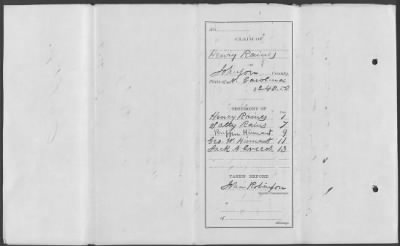 No.
CLAIM OF
Henry Raines
Johnston County,
State of N. Carolina
TESTIMONY OF
Henry Raines 7
Patsy Rains 7
Ruffin Hinnant 9
Geo. W. Hinnant 11
Jack A. Creech 13
TAKEN BEFORE
John Robinson